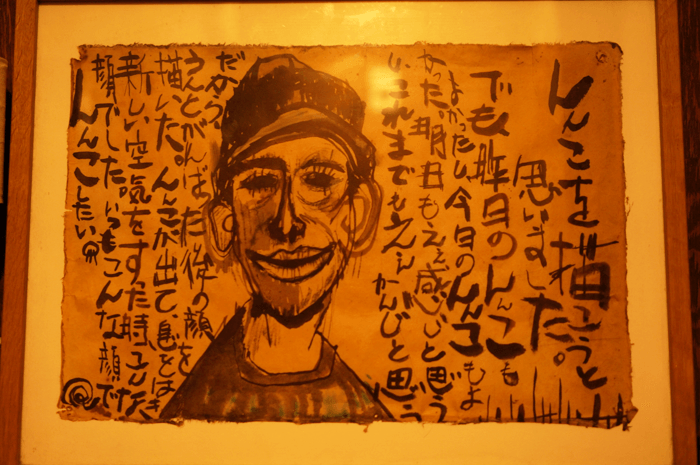 んんこを描こうと
思いました。
でも、昨日のんんこも
よかったし、今日のんんこもよ
かった、明日もええ感じと思う
し、これまでもええかんじと思う
だから
うんとがんばった後の顔を
描いた。んんこが出て、息をはき
新しい空気をすった時こんな
顔でした。いつもこんな顔で
んんこしたい